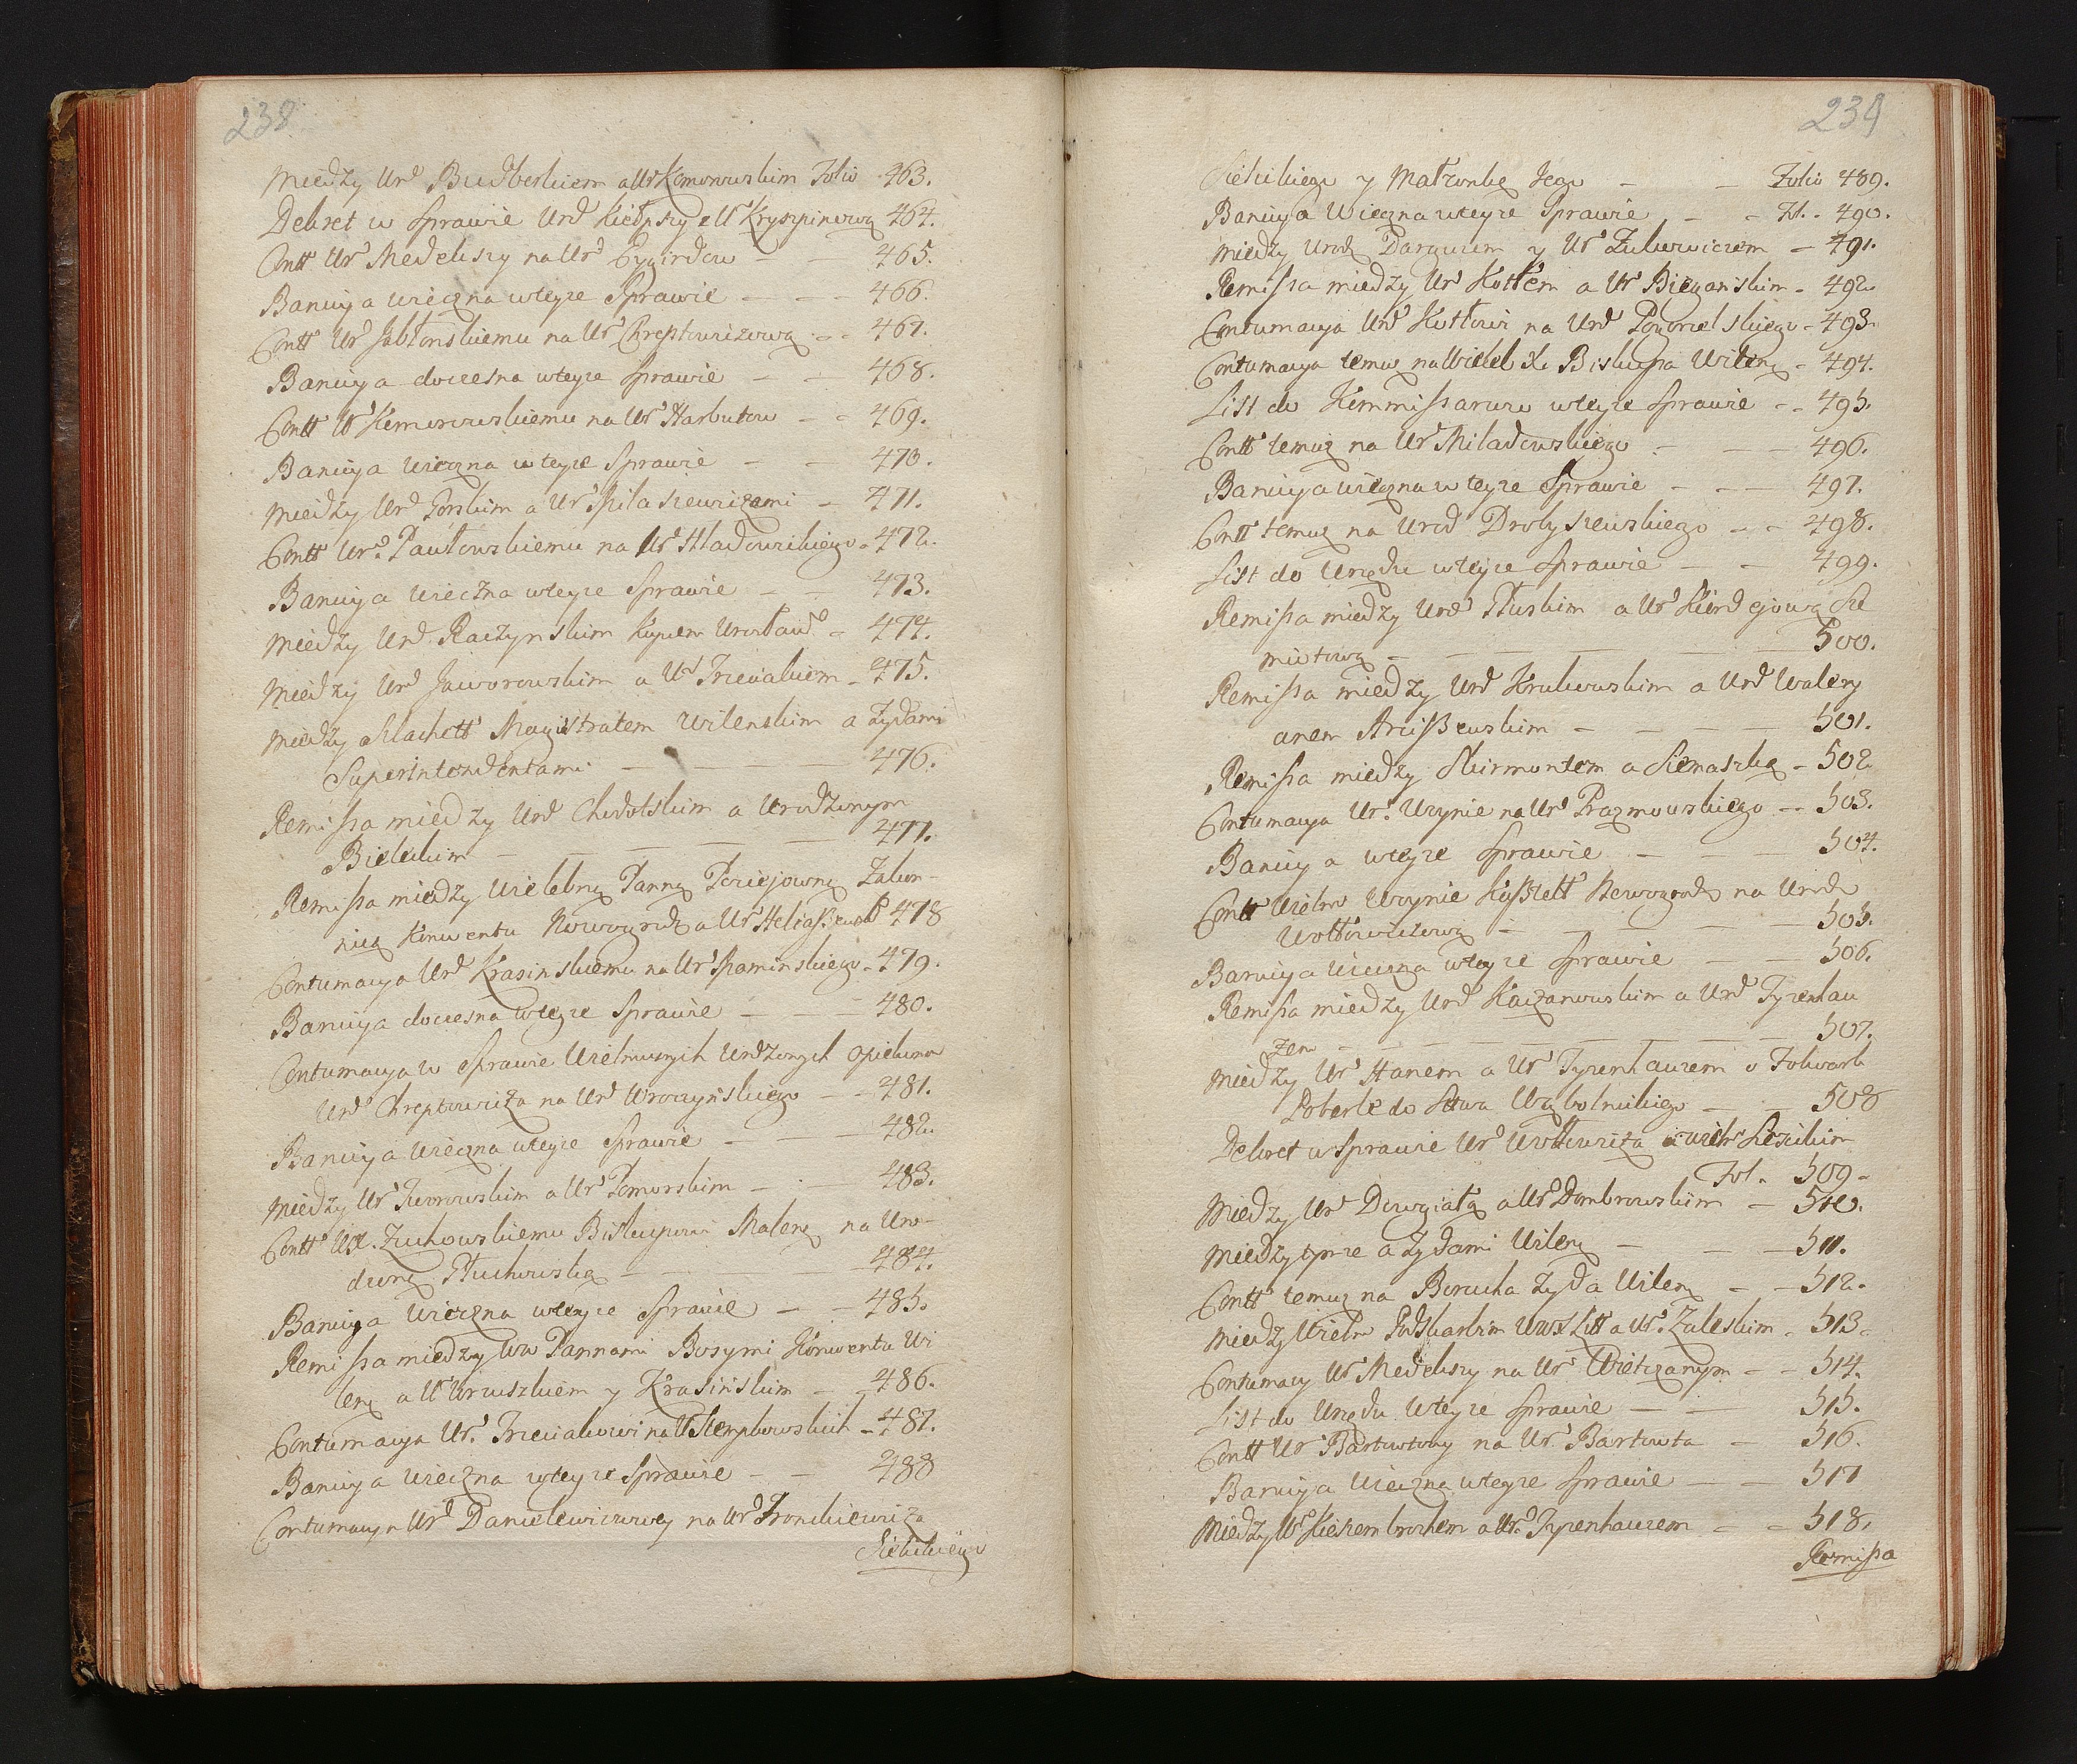 238
Między Urd Budberskiem a Ur Komorowskim Folio 463.
Dekret w Sprawie Urd Kiełpszy z Ur Kryszpinową 464.
Contt Ur Medekszy na Urd Eygirdow — — 465.
Banicya wieczna wteyze Sprawie — — — 466.
Contt Ur Jabłonskiemu na Ur Chreptowiczową - - 467.
Banicya doczesna wteyze Sprawie — — 468.
Contt Ur Komorowskiemu na Ur Narbutow - - 469.
Banicya wieczna w teyze Sprawie — — 470.
Między Urd Gorskim a Ur Spilaszewiczami — 471.
Contt Urd Pawłowskiemu na Ur Hładowickiego - 472.
Banicya wieczna wteyze Sprawie — — 473.
Między Urd Raczynskim Kupcem 474.
Między Urd Jaworowskim a Ur Trzeciakiem - 475.
Między Szlachett Magistratem Wilenskim a Zydami
Superintendentami — — — — 476.
Remissa między Urd Chodolskim a Urodzonym
Bieleckim — — — — — 477.
Remissa między Wielebną Panną Pociejowną Zakon-
nicą Konwentu Nowogrodz a Ur Heliaszewicz 478
Contumacya Urd Krasinskiemu na Ur Kaminskiego - 479.
Banicya doczesna wteyze Sprawie — — — 480.
Contumacya w Sprawie Wielmoznych Urodzonych Opiekunow
Urd Chreptowicza na Urd Wroczyńskiego — - 481.
Banicya wieczna wteyze Sprawie — — — 482.
Między Ur Tworowskim a Ur Pomorskim — - — 483.
Contt WX. Zuchowskiemu Biskupowi na Uro-
dzoną Słuchowską — — — 484.
Banicya wieczna wteyze Sprawie — — 485.
Remissa między Ww Pannami Bosymi Konwentu Wi
lenz a Ur Uruszkiem y Krasińskim — 486.
Contumacya Ur. Trzeciakowi na Ur Stempkowskich - 487.
Banicya wieczna wteyze Sprawie — — 488
Contumacya Urd Danielewiczowey na Urd Fronckiewicza
Sielickiego
239
Sielickiego y Małzonkę Jego — — Folio 489.
Banicya Wieczna wteyze Sprawie — - Fl. - 490.
Między Urodz Dargucem y Ur Zukowiczem — 491.
Remissa między Ur Kottem a Ur Bieganskim - 492.
Contumacya Urd Kottowi na Urd Pogorzelskiego - 493.
Contumacya temuz na Wieleb Xa Biskupa Wilenz - 494.
List do Kommissarzow wteyze Sprawie - - 495.
Contt temuz na Ur Miładowskiego - — — 496.
Banicya wieczna w teyze Sprawie — - — 497.
Contt temuz na Urod Drobyszewskiego — - 498.
List do Urzędu wteyze Sprawie — — 499.
Remissa między Urod Tłuskim a Ur Kierdejową Sie
miotową — — — — — — 500.
Remissa między Urd Krukowskim a Urd Walery
anem Arciszewskim — — — — 501.
Remissa między Skirmontem a Siemaszką — 502.
Contumacya Ur. Uzynie na Urd Prazmowskiego — - 503.
Banicya wteyze Sprawie — — — 504.
Contt Wielm Wizynie Kasztell Nowogrodz na Urodz
Wołłowiczową — — — — 505.
Banicya wieczna wteyze Sprawie — — 506.
Remissa między Urd Kaczanowskim a Urd Tyzenhau
zem — — — — — — 507.
Między Ur Hanem a Ur Tyzenhauzem o Folwark
Poberle do Sttwa Wąbolnickiego — — 508
Dekret w Sprawie Ur Wołłowicza z Wielm Lesickim
Fol. 509-
Między Ur Dowgiałą a Ur Dombrowskim — 510.
Między tymze a Zydami Wilenz — — — 511.
Contt temuz na Borucha Zyda Wilenz — — 512.
Między Wielm Podskarbim WWX Litt a Ur. Zaleskim - 513-
Contumacy Ur Medekszy na Ur Wietczanym — — 514.
List do Urzędu wteyze Sprawie — — 515.
Contt Ur Bartowtowy na Ur. Bartowta — 516.
Banicya Wieczna wteyze Sprawie — — 517
Między Ur Kieszembrochem a Ur. Tyzenhauzem — - 518.
Remissa